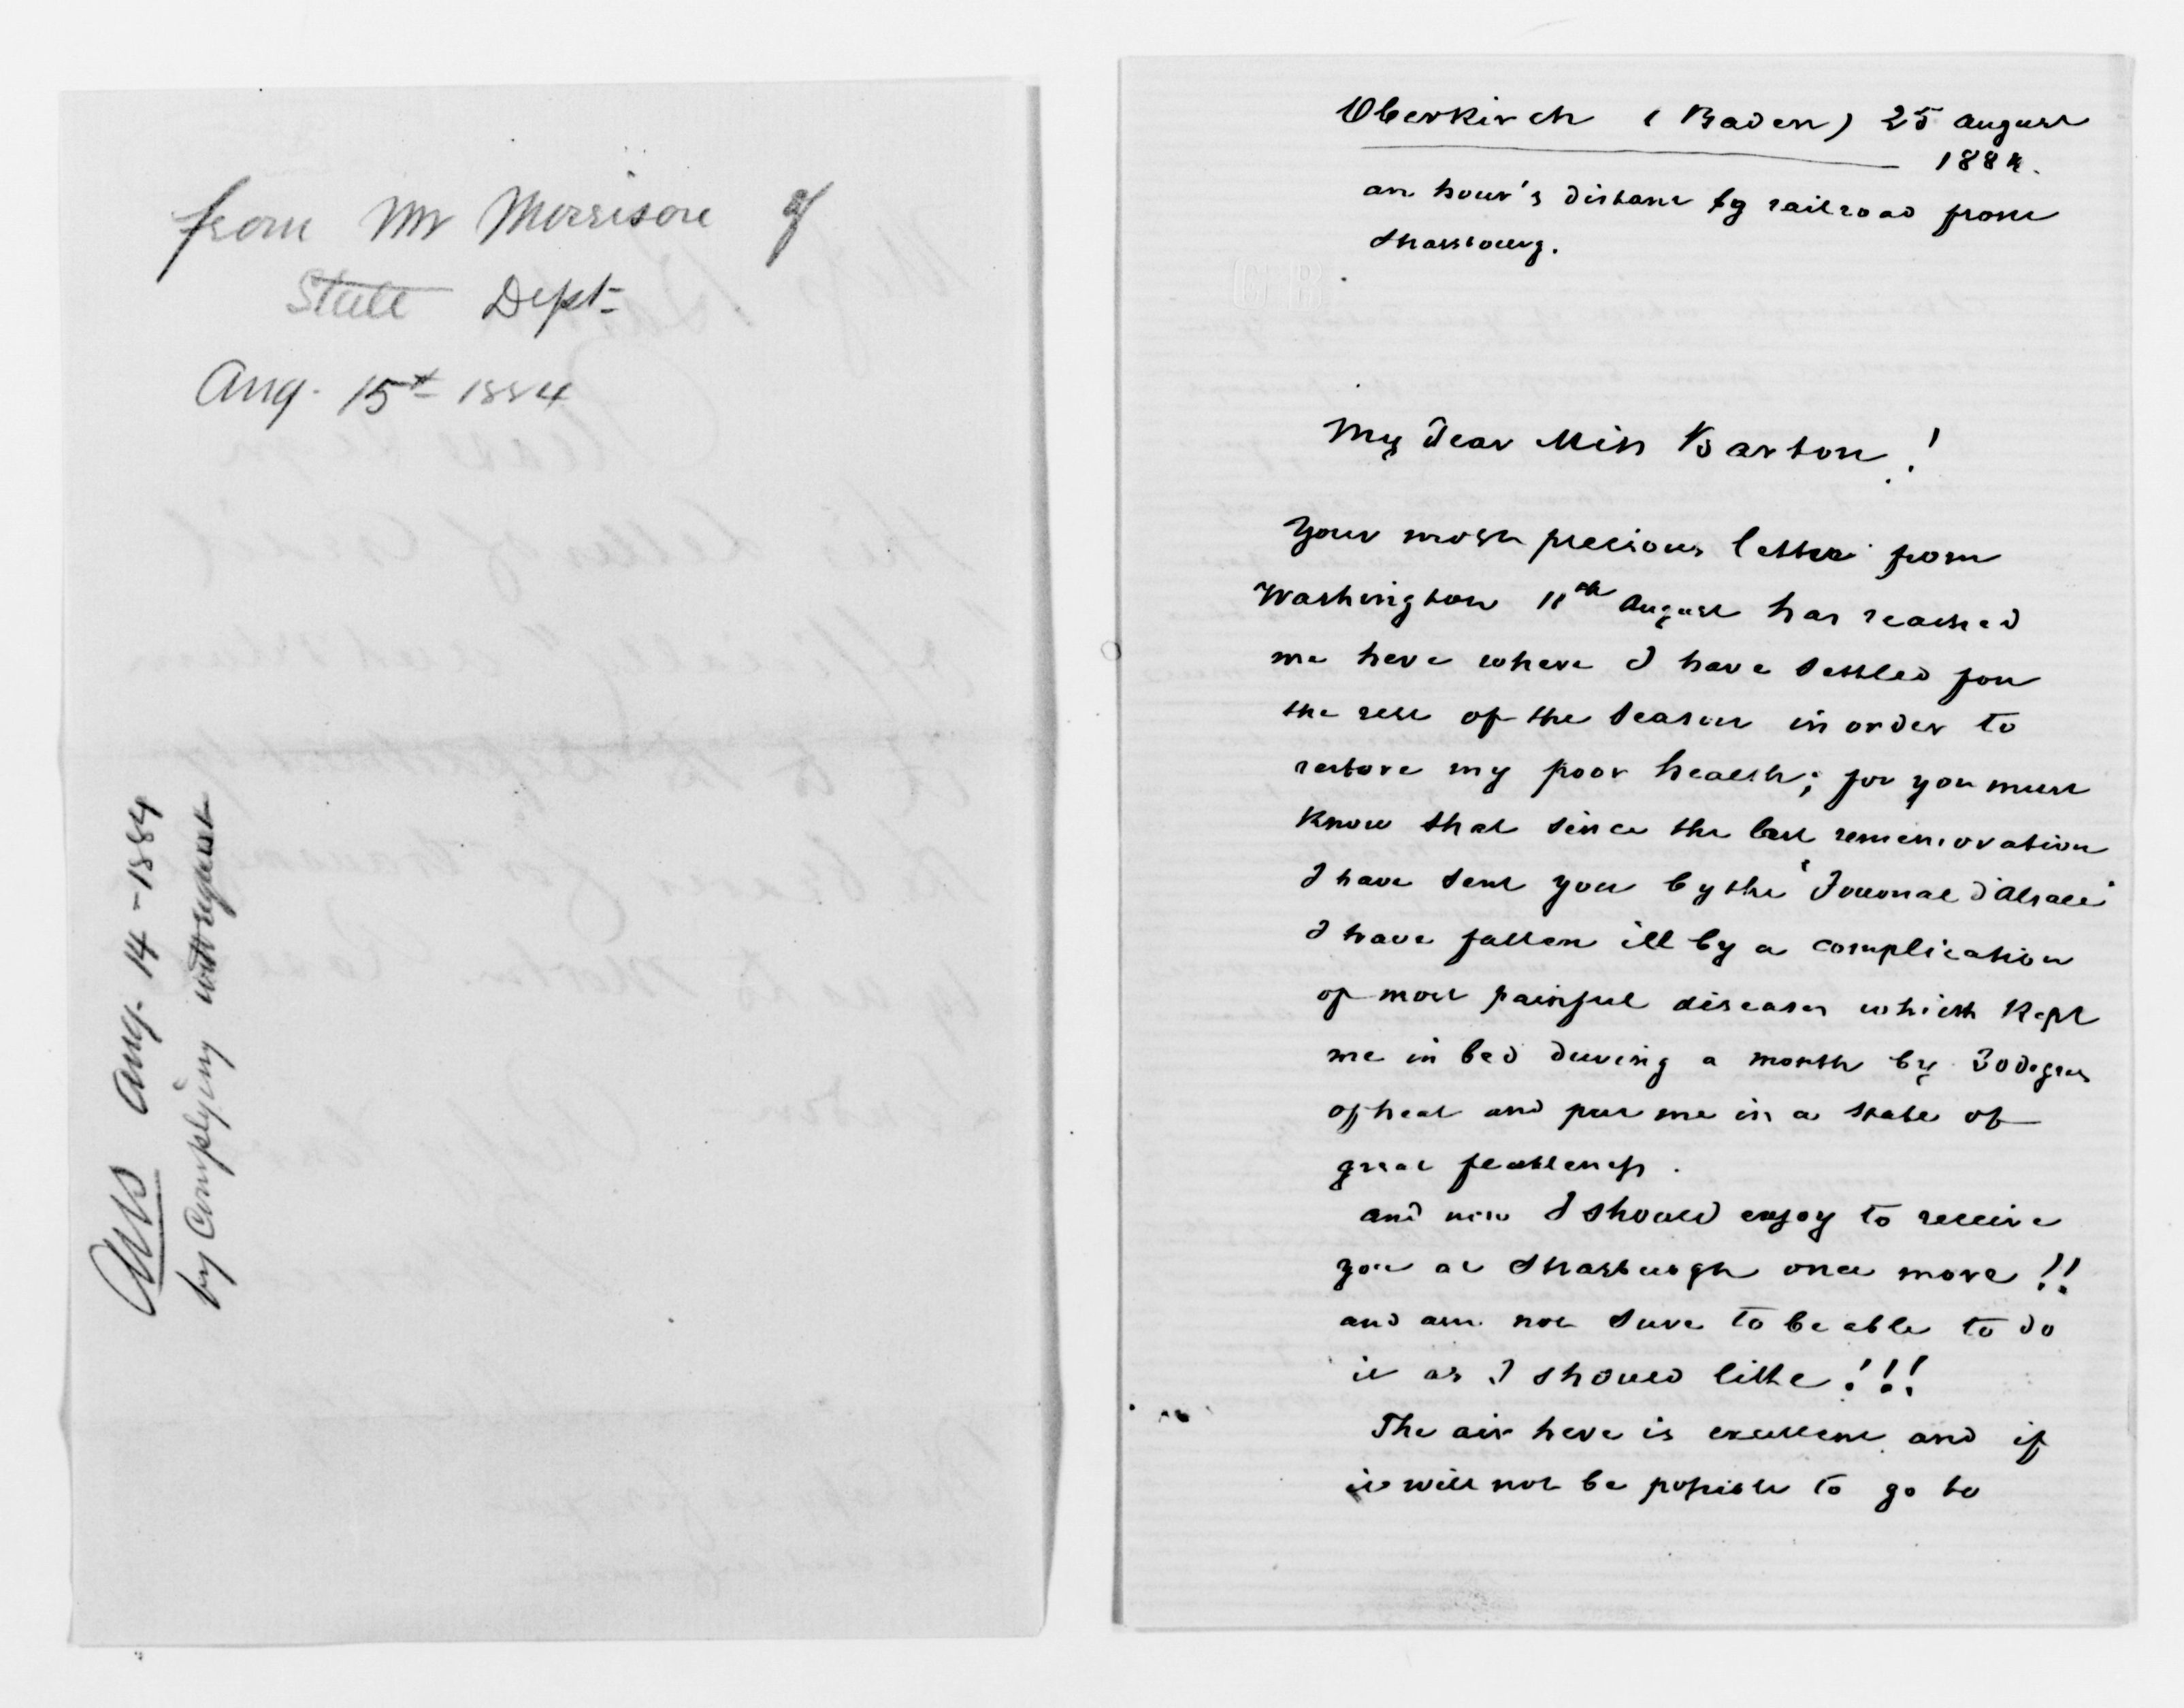 from Mr Morrison of
State Dept
Aug. 15th 1884
Ans Aug. 14 - 1884
by Complying with request
Oberkirch (Baden) 25 August
1884.
an hour's distanc by railroad from
Strassburg.
My dear Miss Barton!
Your most precious letter from
Washington 11th August has reached
me here where I have settled for
the rest of the season in order to
restore my poor health; for you must
know that since the last
I have sent you by the "Journal d'Alsace"
I have fallen ill by a complication
of most painful diseases which kept
me in bed during a month by 30 degrees
of heat and put me in a state of
great feebleness.
and now I should enjoy to receive
you at Strasburgh once more!!
and am not sure to be able to do
it as I should like!!!
The air here is excellent and if
it will not be possible to go to